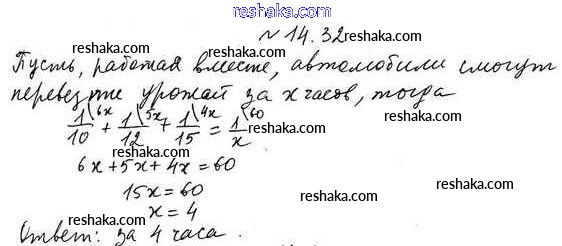 www.reshaka.com
№ 14.32 reshaka.com
reshaka.com
Пусть, работая вместе, автомобили смогут
reshaka.com
перевезти урожай за x часов, тогда
1/10 \6x + 1/12 \5x + 1/15 \4x = 1/x \60
reshaka.com reshaka.com
6x + 5x + 4x = 60
reshaka.com reshaka.com
15x = 60
reshaka.com reshaka.com
x = 4
Ответ: за 4 часа.
reshaka.com reshaka.com